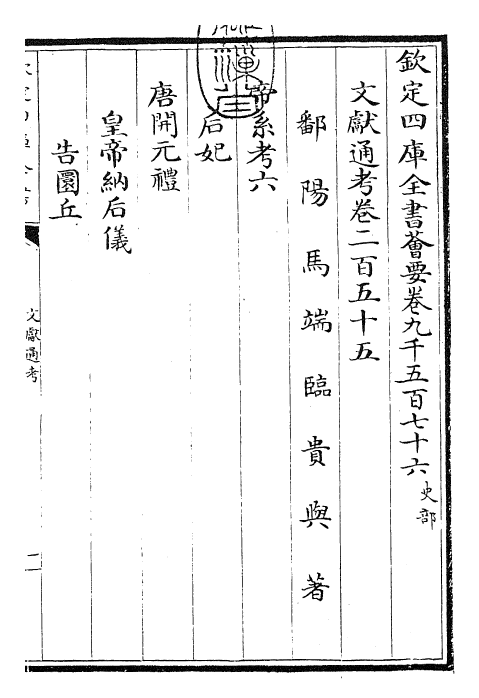 欽定四庫全書薈要卷九千五百七十六 史部
文獻通考卷二百五十五
鄱陽馬端臨貴與著
帝系考六
后妃
唐開元禮
皇帝納后儀
告圜丘
文獻通考